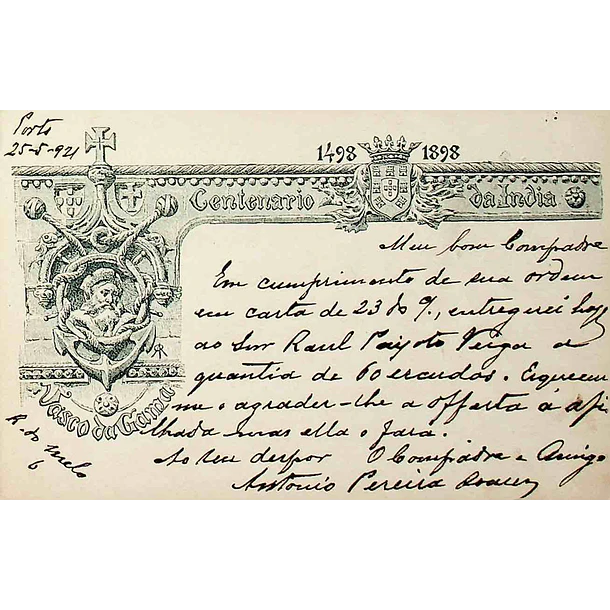 Porto
25-5-921
1498 1898
Centenario da India
Vasco da Gama
Meu bom Compadre
Em cumprimento de sua ordem
em carta de 23 do , entreguei hoje
ao Snr Raul Peixoto Veiga a
quantia de 60 escudos. Esqueceu
me o agradecer-lhe a offerta á afi
lhada mas ella o fará.
Ao seu dispor O Compadre e Amigo
Antonio Pereira
R. do Melo
6